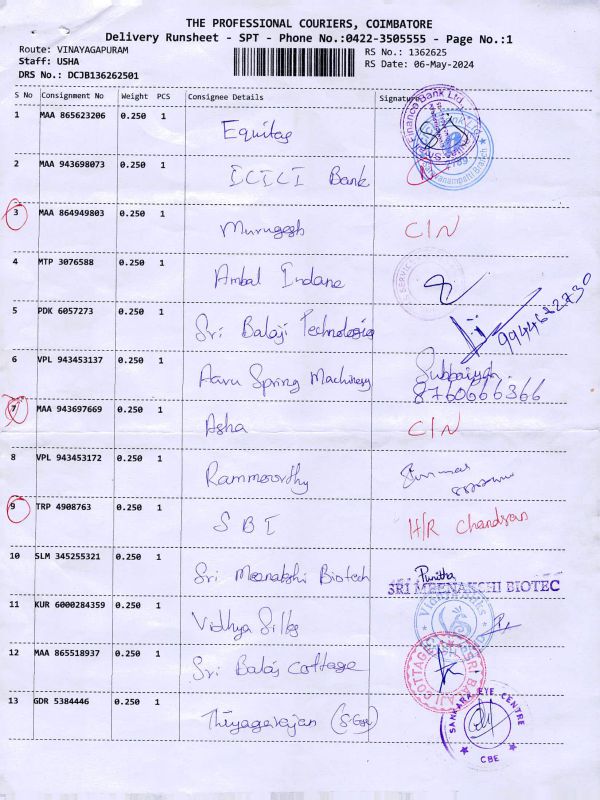 THE PROFESSIONAL COURIERS, COIMBATORE
Delivery Runsheet - SPT - Phone No.:0422-3505555 - Page No.:1
Route: VINAYAGAPURAM RS No.: 1362625
Staff: USHA RS Date: 06-May-2024
DRS No.: DCJB136262501
S No Consignment No Weight PCS Consignee Details Signature
1 MAA 865623206 0.250 1 Equitas
2 MAA 943698073 0.250 1 ICICI Bank
3 MAA 864949803 0.250 1 Murugesh C/N
4 MTP 3076588 0.250 1 Ambal Indane
5 PDK 6057273 0.250 1 Sri Balaji Technologies
6 VPL 943453137 0.250 1 Aaru Spring Machinery Subbaiyah
8760666366
7 MAA 943697669 0.250 1 Asha C/N
8 VPL 943453172 0.250 1 Rammoorthy
9 TRP 4908763 0.250 1 SBI H/R Chandran
10 SLM 345255321 0.250 1 Sri Meenakshi Biotech Punitha
SRI MEENAKSHI BIOTEC
11 KUR 6000284359 0.250 1 Vidhya Silks
12 MAA 865518937 0.250 1 Sri Balaj Cottage
SRI BALAJI COTTAGE
13 GDR 5384446 0.250 1 Thiyagarajan
SANKARA EYE CENTRE
CBE